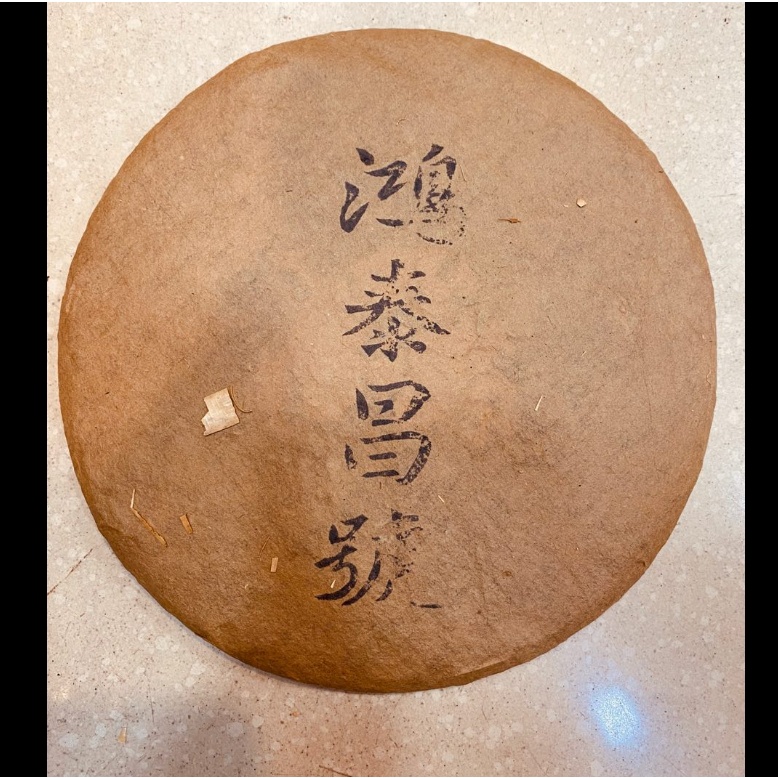 鴻泰昌號